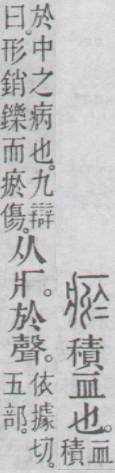 瘀積血也。血
積
於中之病也。九辯
曰。形銷鑠而瘀傷。
从疒。於聲。依據切。
五部。